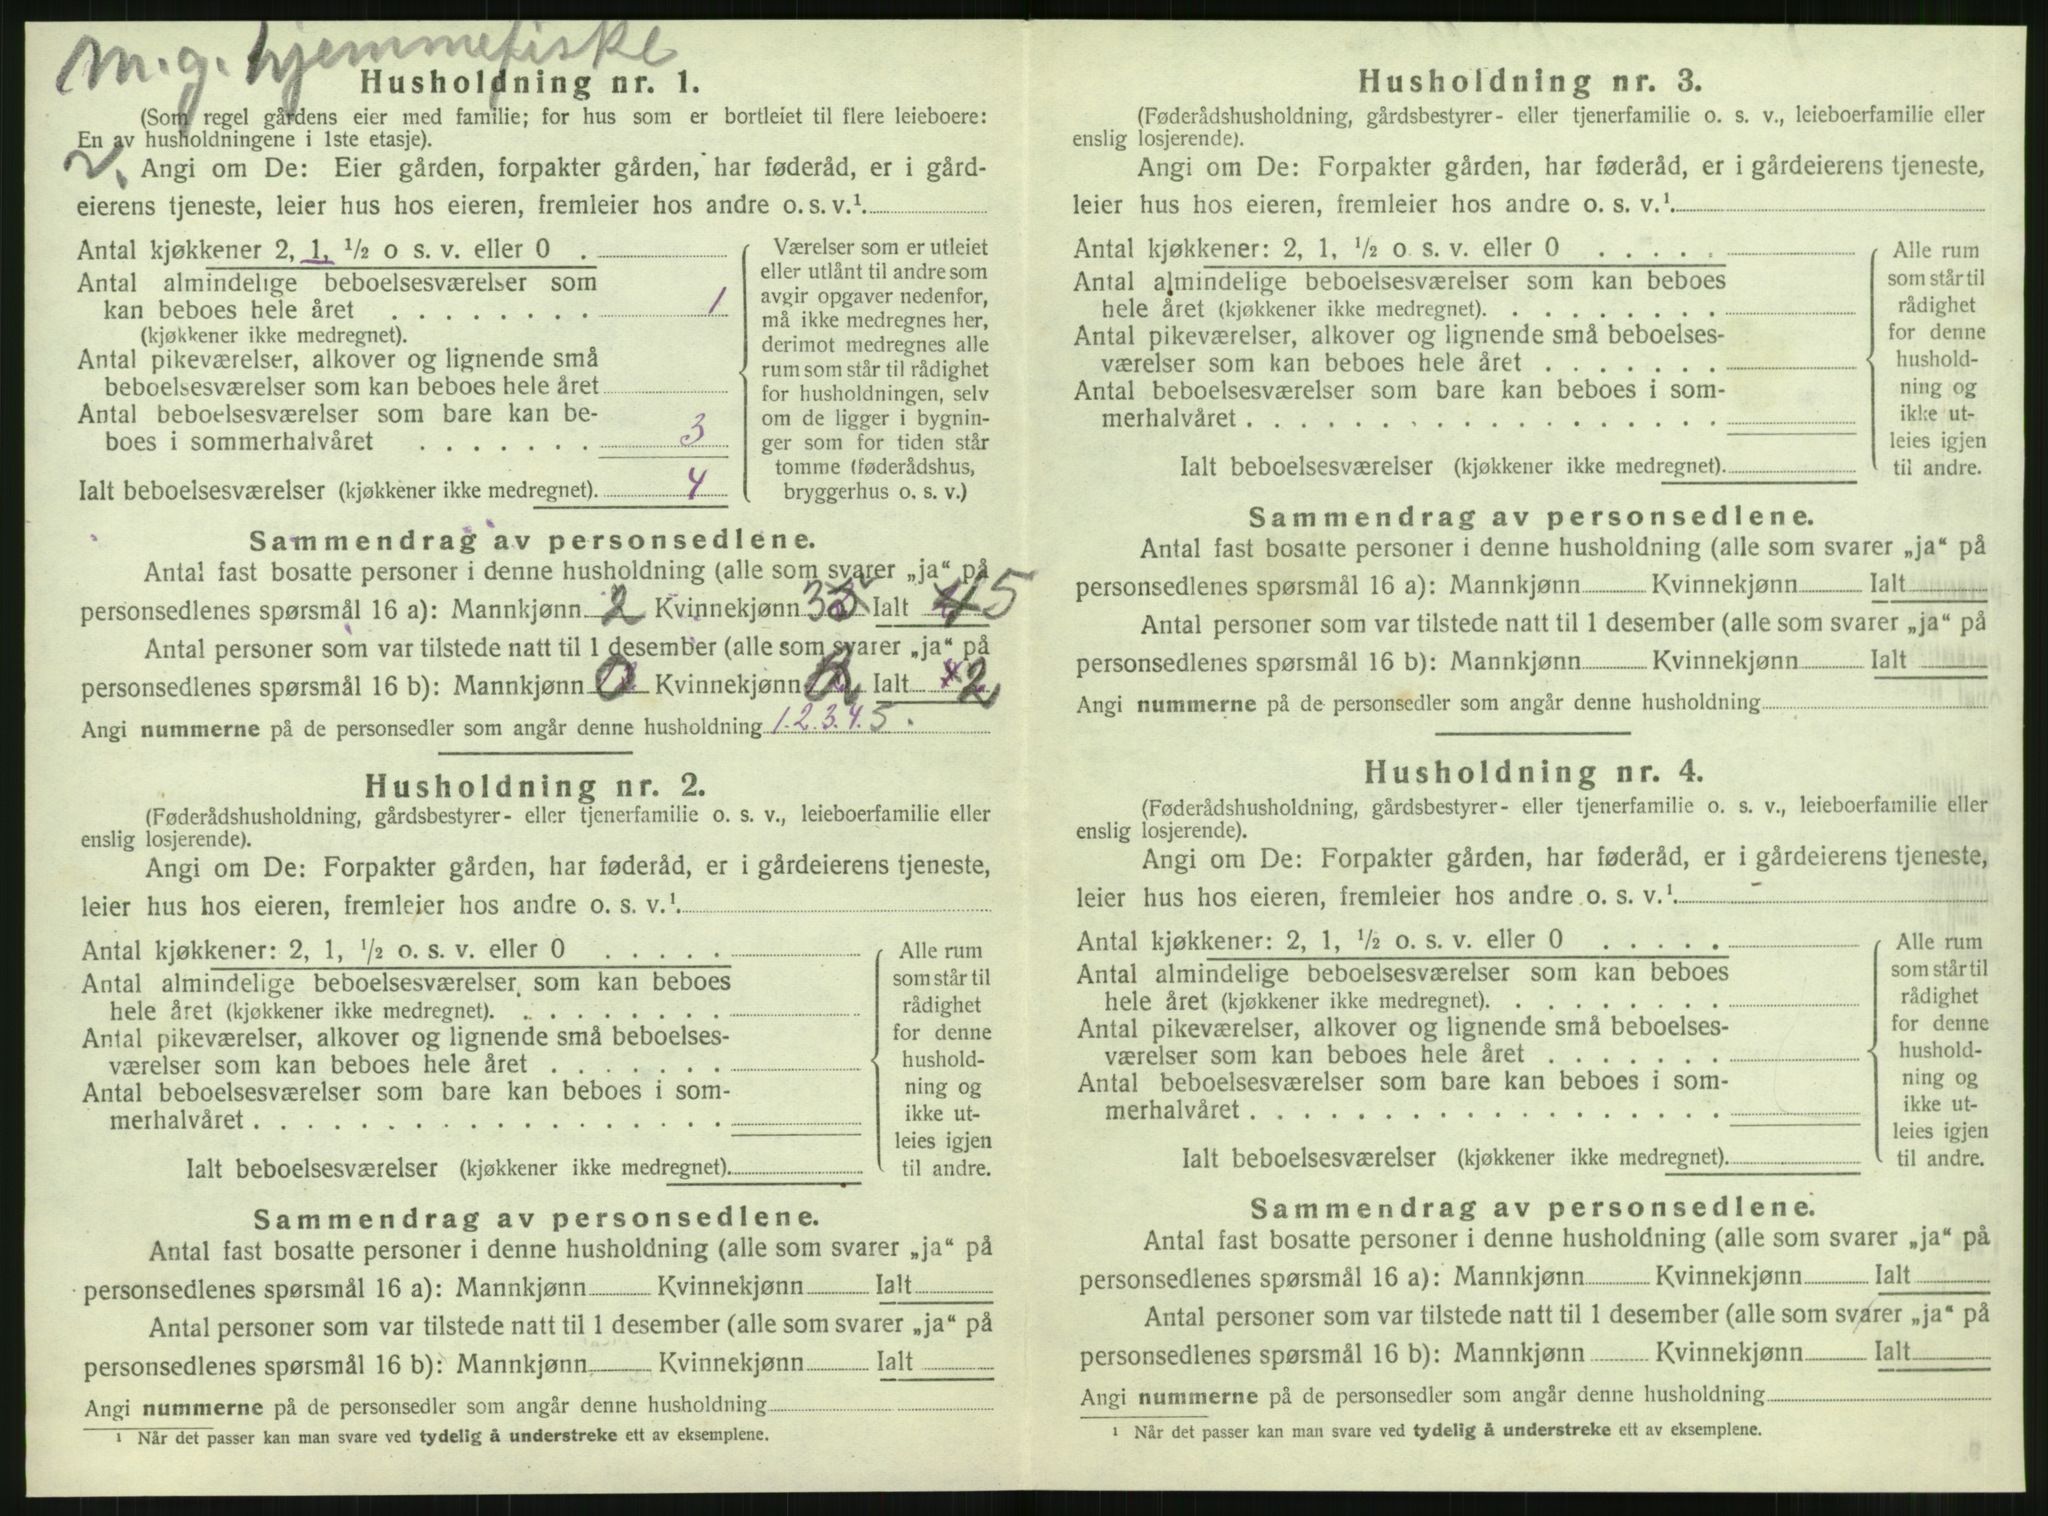 m.g. hjemmefiske
Husholdning nr. 1.
(Som regel gårdens eier med familie; for hus som er bortleiet til flere leieboere:
En av husholdningene i 1ste etasje).
Angi om De: Eier gården, forpakter gården, har føderåd, er i gård-
eierens tjeneste, leier hus hos eieren, fremleier hos andre o. s. v.¹.
Antal kjøkkener 2, 1, ½ o s. v. eller 0 .
Antal almindelige beboelsesværelser som
kan beboes hele året . . . . . . . . 1
(kjøkkener ikke medregnet).
Antal pikeværelser, alkover og lignende små
beboelsesværelser som kan beboes hele året
Antal beboelsesværelser som bare kan be-
boes i sommerhalvåret . . . . . . . 3
Ialt beboelsesværelser (kjøkkener ikke medregnet). 4
Værelser som er utleiet
eller utlånt til andre som
avgir opgaver nedenfor,
må ikke medregnes her,
derimot medregnes alle
rum som står til rådighet
for husholdningen, selv
om de ligger i bygnin-
ger som for tiden står
tomme (føderådshus,
bryggerhus o. s. v.)
Sammendrag av personsedlene.
Antal fast bosatte personer i denne husholdning (alle som svarer „ja“ på
personsedlenes spørsmål 16 a): Mannkjønn 2 Kvinnekjønn 3 Ialt 5
Antal personer som var tilstede natt til 1 desember (alle som svarer „ja“ på
personsedlenes spørsmål 16 b): Mannkjønn 0 Kvinnekjønn 2 Ialt 2
Angi nummerne på de personsedler som angår denne husholdning 1.2.3.4.5.
Husholdning nr. 2.
(Føderådshusholdning, gårdsbestyrer- eller tjenerfamilie o. s. v., leieboerfamilie eller
enslig losjerende).
Angi om De: Forpakter gården, har føderåd, er i gårdeierens tjeneste,
leier hus hos eieren, fremleier hos andre o. s. v.¹.
Antal kjøkkener: 2, 1, ½ o. s. v. eller 0 . . . . .
Antal almindelige beboelsesværelser som kan beboes
hele året (kjøkkener ikke medregnet). . . . . . . . .
Antal pikeværelser, alkover og lignende små beboelses-
værelser som kan beboes hele året . . . . . . .
Antal beboelsesværelser som bare kan beboes i som-
merhalvåret . . . . . . . . . . . . . . . . . .
Ialt beboelsesværelser (kjøkkener ikke medregnet).
Alle rum
som står til
rådighet
for denne
hushold-
ning og
ikke ut-
leies igjen
til andre.
Sammendrag av personsedlene.
Antal fast bosatte personer i denne husholdning (alle som svarer „ja“ på
personsedlenes spørsmål 16 a): Mannkjønn Kvinnekjønn Ialt
Antal personer som var tilstede natt til 1 desember (alle som svarer „ja“ på
personsedlenes spørsmål 16 b): Mannkjønn Kvinnekjønn Ialt
Angi nummerne på de personsedler som angår denne husholdning
¹ Når det passer kan man svare ved tydelig å understreke ett av eksemplene.
Husholdning nr. 3.
(Føderådshusholdning, gårdsbestyrer- eller tjenerfamilie o. s. v., leieboerfamilie eller
enslig losjerende).
Angi om De: Forpakter gården, har føderåd, er i gårdeierens tjeneste,
leier hus hos eieren, fremleier hos andre o. s. v.¹.
Antal kjøkkener: 2, 1, ½ o. s. v. eller 0 . . . . .
Antal almindelige beboelsesværelser som kan beboes
hele året (kjøkkener ikke medregnet). . . . . . . . .
Antal pikeværelser, alkover og lignende små beboelses-
værelser som kan beboes hele året . . . . . . .
Antal beboelsesværelser som bare kan beboes i som-
merhalvåret . . . . . . . . . . . . . . . . . .
Ialt beboelsesværelser (kjøkkener ikke medregnet).
Alle rum
som står til
rådighet
for denne
hushold-
ning og
ikke ut-
leies igjen
til andre.
Sammendrag av personsedlene.
Antal fast bosatte personer i denne husholdning (alle som svarer „ja“ på
personsedlenes spørsmål 16 a): Mannkjønn Kvinnekjønn Ialt
Antal personer som var tilstede natt til 1 desember (alle som svarer „ja“ på
personsedlenes spørsmål 16 b): Mannkjønn Kvinnekjønn Ialt
Angi nummerne på de personsedler som angår denne husholdning
Husholdning nr. 4.
(Føderådshusholdning, gårdsbestyrer- eller tjenerfamilie o. s. v., leieboerfamilie eller
enslig losjerende).
Angi om De: Forpakter gården, har føderåd, er i gårdeierens tjeneste,
leier hus hos eieren, fremleier hos andre o. s. v.¹.
Antal kjøkkener: 2, 1, ½ o. s. v. eller 0 . . . . .
Antal almindelige beboelsesværelser som kan beboes
hele året (kjøkkener ikke medregnet). . . . . . . . .
Antal pikeværelser, alkover og lignende små beboelses-
værelser som kan beboes hele året . . . . . . .
Antal beboelsesværelser som bare kan beboes i som-
merhalvåret . . . . . . . . . . . . . . . . . .
Ialt beboelsesværelser (kjøkkener ikke medregnet).
Alle rum
som står til
rådighet
for denne
hushold-
ning og
ikke ut-
leies igjen
til andre.
Sammendrag av personsedlene.
Antal fast bosatte personer i denne husholdning (alle som svarer „ja“ på
personsedlenes spørsmål 16 a): Mannkjønn Kvinnekjønn Ialt
Antal personer som var tilstede natt til 1 desember (alle som svarer „ja“ på
personsedlenes spørsmål 16 b): Mannkjønn Kvinnekjønn Ialt
Angi nummerne på de personsedler som angår denne husholdning
¹ Når det passer kan man svare ved tydelig å understreke ett av eksemplene.